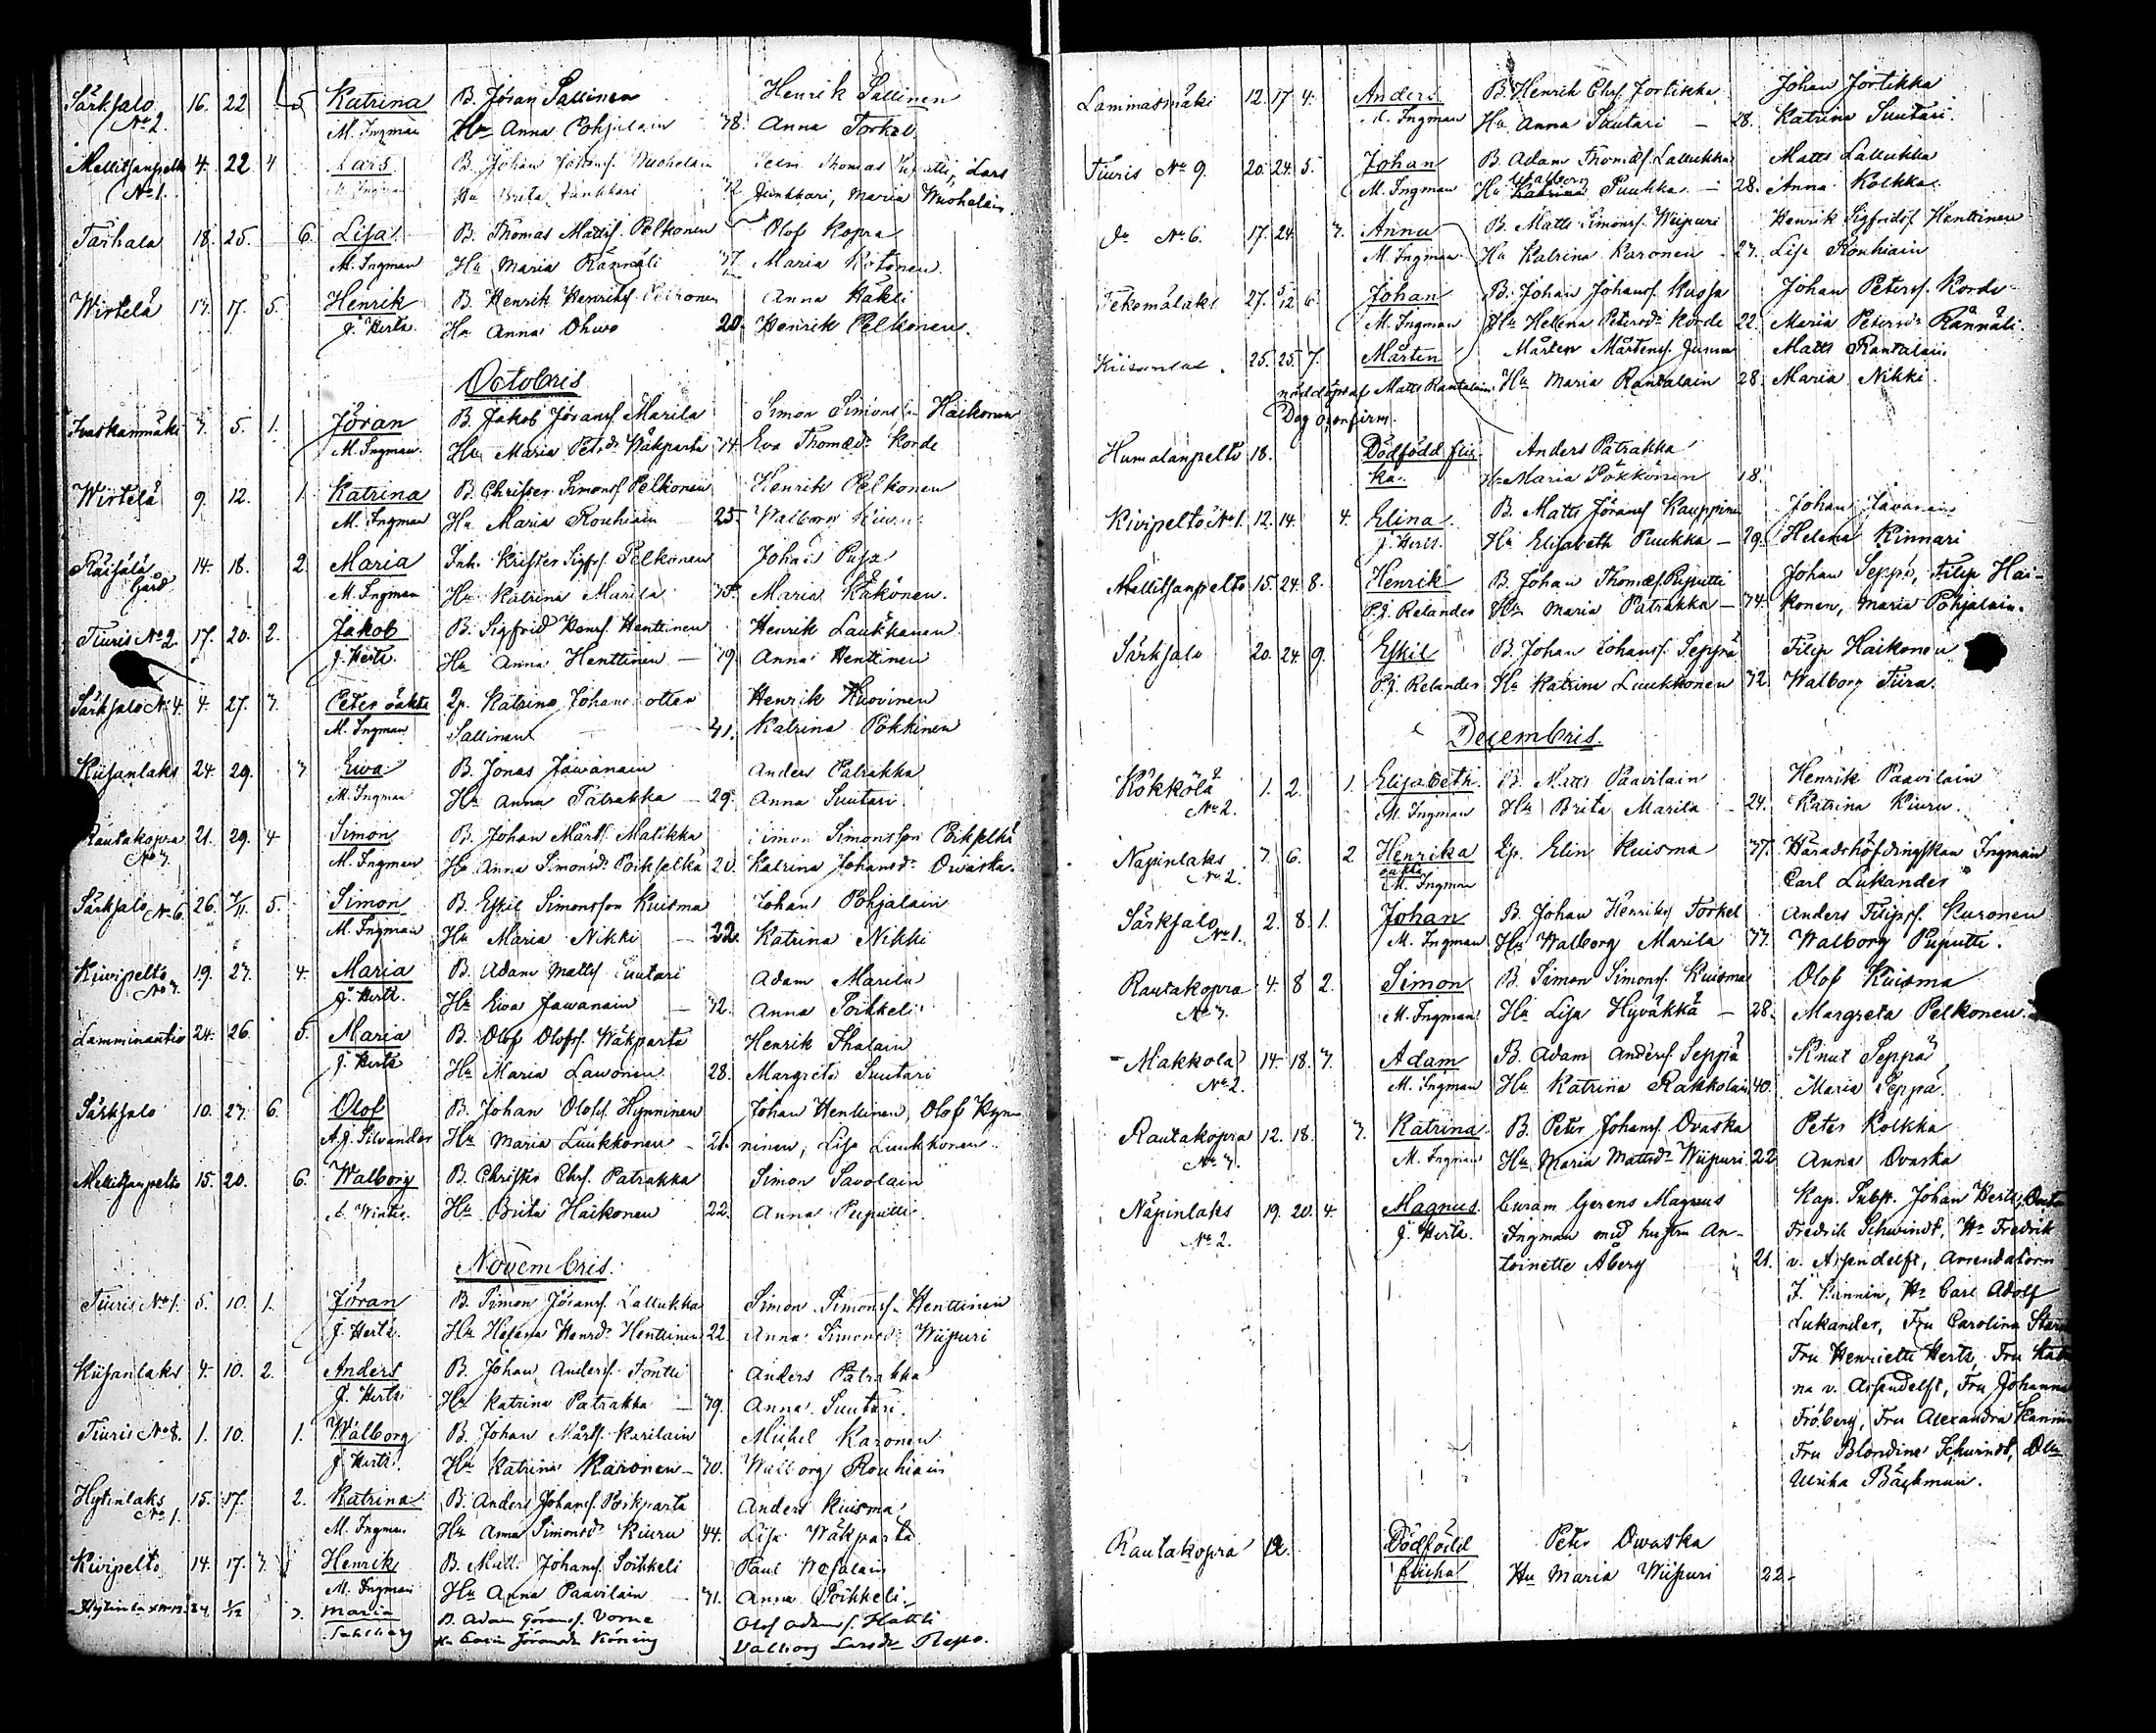 Särksalo 16. 22 5 Katrina B. Jöran Sallinen Henrik Sallinen
No 2. M. Ingman Hu Anna Pohjalain 38. Anna Torkel
Mellitsanpelto 4. 22 4 Lars B. Johan Johansf. Wuohelain Lars
No 1. M. Ingman Hu Brita Junkkari 32 Junkkari, Maria Wuohelain.
Tarhala 18. 25. 6. Lisa B. Thomas Mattsf. Pelkonen Olof Kopra
M. Ingman Hu Maria Rännäli 37. Maria Kotonen.
Wirtelä 17. 17. 5. Henrik B. Henrik Henriksf. Anna Käkli
J. Herts. Hu Anna Ohwo 20. Henrik Pelkonen.
Octobris
Ivaskanmäki 3. 5. 1. Jöran B. Jakob Jöransf. Marila Simon Simonsson Haikonen
M. Ingman. Hu Maria Petsdr Wäkparta 34. Eva Thomædr Korde
Wirtelä 9. 12. 1. Katrina B. Christer Simonsf Pelkonen Henrik Pelkonen
M. Ingman Hu Maria Rouhiain 25. Walborg
Räisälä 14. 18. 2. Maria Inh. Krister Sigfrf. Pelkonen Johan Pusa
Gård M. Ingman Hu Katrina Marila 35. Maria Käkönen.
Tiuris No 2. 17. 20. 2. Jakob B. Sigfrid Henrf. Henttinen Henrik Laukkanen
J. Herts. Hu Anna Henttinen — 39. Anna Henttinen
Särksalo No 4. 4. 27. 3. Peter oäkta Qp. Katrina Johans dotter Henrik Kuovinen
M. Ingman Sallinen 41. Katrina Pökkinen
Kiisanlaks 24. 29. 3 Ewa B. Jonas Jäwanain Anders Patrakka
M. Ingman Hu Anna Patrakka — 29. Anna Suutari
Rautakopra 21. 29. 4. Simon B. Johan Mårtsf. Matikka Simon Simonsson Poikselkä
No 3. M. Ingman Hu Anna Simonsdr Poikselkä 20. Katrina Johansdr Owaska.
Särksalo No 6. 26. 2/11. 5. Simon B. Eskil Simonsson Kuisma Johan Pohjalain
M. Ingman Hu Maria Nikki — 22. Katrina Nikki
Kiwipelto 19. 27. 4. Maria B. Adam Mattsf. Suutari Adam Marila
No 3. J. Herts. Hu Ewa Jawanain — 32. Anna Soikkeli
Lamminautio 24. 26. 5. Maria B. Olof Olofsf. Wäkparta Henrik Ihalain
J. Herts Hu Maria Lawonen 28. Margreta Suutari
Särksalo 10. 27. 6. Olof B. Johan Olofsf. Hynninen Johan Henttinen, Olof Hyn-
A. J. Silvander Hu Maria Luukkonen – 21. ninen, Lisa Luukkonen.
Mellitsanpelto 15. 20. 6. Walborg B. Christer Chrsf. Patrakka Simon Savolain
A. Winter. Hu Brita Haikonen 22. Anna Puputti.
Novembris.
Tiuris No 1. 5. 10. 1. Jöran B. Simon Jöransf. Lallukka Simon Simonsf. Henttinen
J. Herts. Hu Helena Henrdr Henttinen 22. Anna Simonsdr Wiipuri
Kiisanlaks 4. 10. 2. Anders B. Johan Andersf. Tontti Anders Patrakka
J. Herts Hu Katrina Patrakka — 39. Anna Suutari.
Tiuris No 8. 1. 10. 1. Walborg B. Johan Mårtsf. Karilain Michel Karonen
J. Herts. Hu Katrina Karonen – 30. Walborg Rouhiain
Hytinlaks 15. 17. 2. Katrina B. Anders Johansf. Poikparta Anders Kuisma
No 1. M. Ingman Hu Anna Simonsdr Kiuru 44. Lisa Wäkparta
Kivipelto 14. 17. 3. Henrik B. Matts Johansf. Soikkeli Paul Wesalain
M. Ingman Hu Anna Paavilain — 31. Anna Soikkeli.
24. 1/12 3. Maria B. Adam Göransf. Vorne Olof Adamsf. Hattli
Hu Jöransdr Valborg Larsdr Repo.
Lammasmäki 12. 17. 4. Anders B. Henrik Chrsf. Jortikka Johan Jortikka
M. Ingman Hu Anna Suutari — 28. Katrina Suutari.
Tiuris No 9. 20. 24. 5. Johan B. Adam Thomæsf. Lallukka Matts Lallukka
M. Ingman Hu Walborg Katrina Puukka — 28. Anna Kolkka.
Do No 6. 17. 24. 3. Anna B. Matts Simonsf. Wiipuri Henrik Sigfridsf. Henttinen
M. Ingman Hu Katrina Karonen 27. Lisa Rouhiain
Tekemälaks 27. 5/12 6. Johan B. Johan Johansf. Kuosa Johan Petersf. Korde
M. Ingman Hu Helena Petersdr Korde 22. Maria Petersdr Rännäli.
25. 25. 7. Mårten Mårten Mårtensf. Junna Matts Rantalain
nöddöpt af Matts Rantalain Hu Maria Rantalain 28. Maria Nikki.
Dag o. confirm.
Humalanpelto 18. Dödfödd flic- Anders Patrakka
ka. Hu Maria Pökkönen 18.
Kivipelto No 1. 12. 14. 4. Elina B. Matts Jöransf. Kauppinen Johan Jäwanain
J. Herts. Hu Elisabeth Puukka — 29. Helena Kinnari
Mellitsanpelto 15. 24. 8. Henrik B. Johan Thomæsf. Puputti Johan Seppä, Filip Hai-
P. J. Relander Hu Maria Patrakka — 34. konen, Maria Pohjalain.
Särksalo 20. 24. 9. Eskil B. Johan Johansf. Seppä Filip Haikonen
P. J. Relander Hu Katrina Luukkonen 32. Walborg Tiira.
Decembris.
Kökkölä 1. 2. 1. Elisabeth. B. Matts Paavilain Henrik Paavilain
No 2. M. Ingman Hu Brita Marila – 24. Katrina Kiuru.
Näpinlaks 3. 6. 2. Henrika Qp. Elin Kuisma 37. Häradshöfdingskan Ingman
No 2. oäkta M. Ingman Carl Lukander
Särksalo 2. 8. 1. Johan B. Johan Henriksf Torkel Anders Filipsf. Kuronen
No 1. M. Ingman Hu Walborg Marila 33. Walborg Puputti.
Rautakopra 4. 8. 2. Simon B. Simon Simonsf. Kuisma Olof Kuisma
No 3. M. Ingman Hu Lisa Hyväkkä — 28. Margreta Pelkonen.
Makkola 14. 18. 3. Adam B. Adam Andersf. Seppä Knut Seppä
No 2. M. Ingman Hu Katrina Rakkolain 40. Maria Seppä.
Rautakopra 12. 18. 3. Katrina B. Peter Johansf. Ovaska Peter Kolkka
No 3. M. Ingman Hu Maria Mattsdr Wiipuri 22 Anna Ovaska
Näpinlaks 19. 20. 4. Magnus. Curam Gerens Magnus Kap. Subst. Johan Herts,
No 2. J. Herts. Ingman med hustru An- Fredrik Schwindt, Hr Fredrik
toinette Åberg 21. v. Assendelft, Arrendatorn
J. Kannin, Hr Carl Adolf
Lukander, Fru Carolina
Fru Henriette Herts, Fru
na v. Assendelft, Fru Johanna
Fröberg, Fru Alexandra Kannin
Fru Blondina Schwindt,
Ulrika Bäckman.
Rautakopra 12. Dödfödd Peter Owaska
flicka Hu Maria Wiipuri 22.